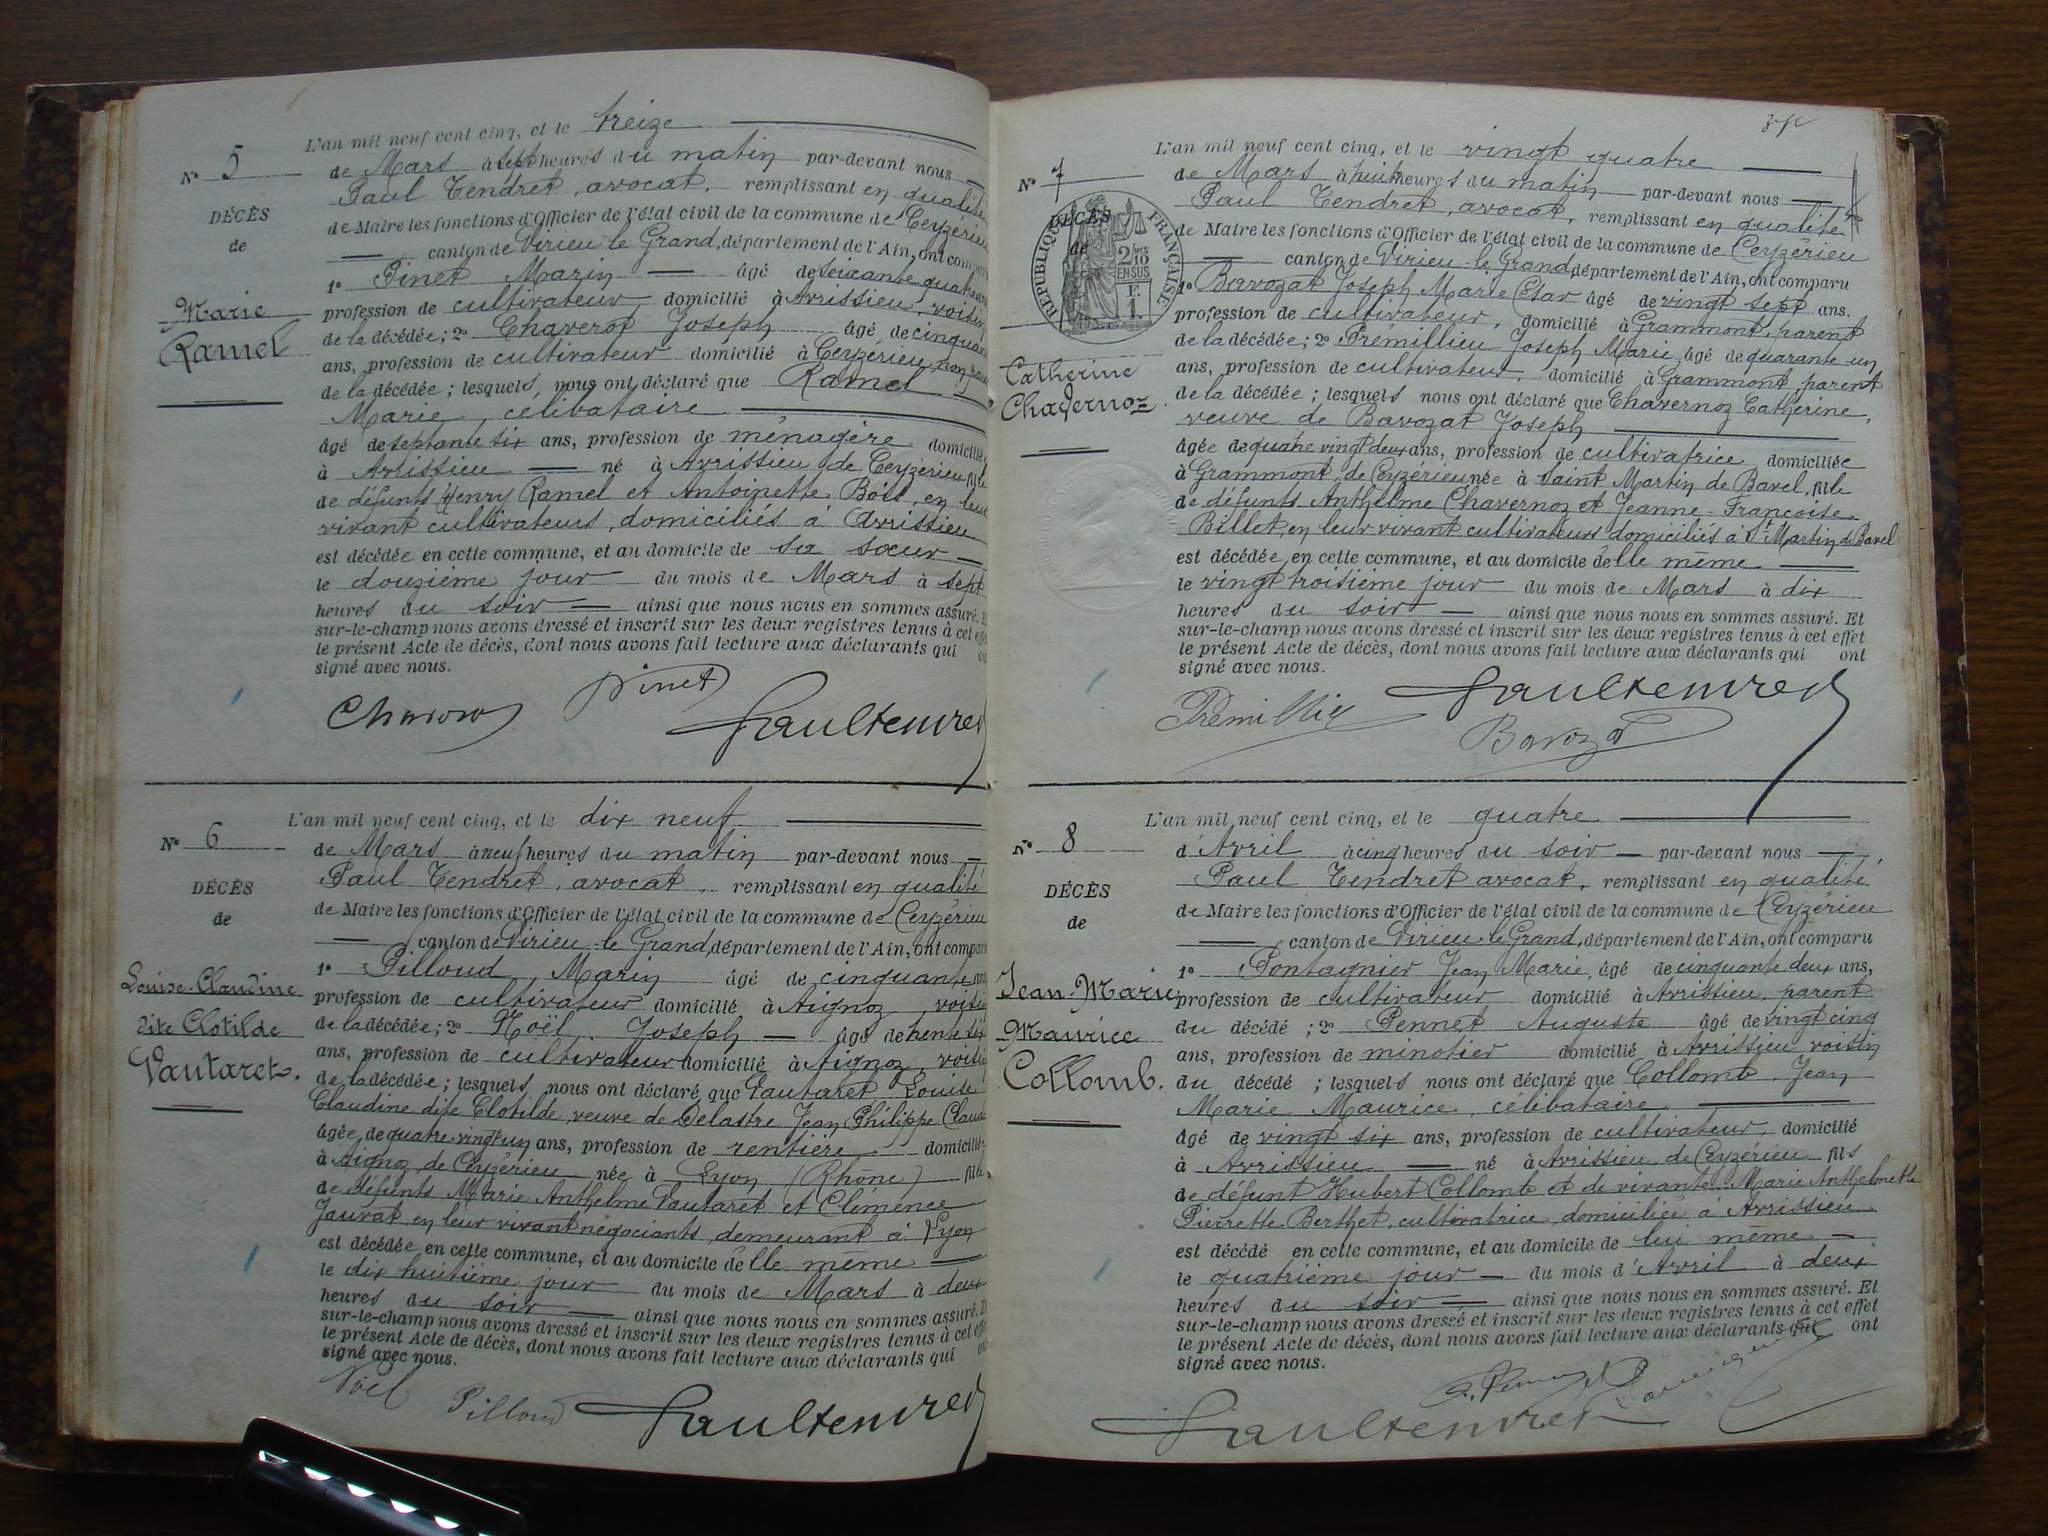 L'an mil neuf cent cinq, et le treize
N° 5
de Mars à sept heures du matin par-devant nous
Paul Tendret, avocat, remplissant en qualité
DÉCÈS
de Maire les fonctions d'Officier de l'état civil de la commune de Ceyzérieu
de
canton de Virieu le Grand, département de l'Ain, ont comparu
1° Pinet Marin âgé de soixante quatre ans
Marie
profession de cultivateur domicilié à Avrissieu, voisin
Ramel
de la décédée; 2° Chaverot Joseph âgé de cinquante
ans, profession de cultivateur domicilié à Ceyzérieu, non
de la décédée; lesquels, nous ont déclaré que Ramel
Marie, célibataire
âgé de septante six ans, profession de ménagère domiciliée
à Avrissieu né à Avrissieu de Ceyzérieu fille
de défunts Henry Ramel et Antoinette en leur
vivant cultivateurs, domiciliés à Avrissieu
est décédée en cette commune, et au domicile de sa sœur
le douzième jour du mois de Mars à sept
heures du soir ainsi que nous nous en sommes assuré. Et
sur-le-champ nous avons dressé et inscrit sur les deux registres tenus à cet effet
le présent Acte de décès, dont nous avons fait lecture aux déclarants qui ont
signé avec nous.
Pinet
Paul Tendret
L'an mil neuf cent cinq, et le dix neuf
N° 6
de Mars à neuf heures du matin par-devant nous
Paul Tendret, avocat, remplissant en qualité
DÉCÈS
de Maire les fonctions d'Officier de l'état civil de la commune de Ceyzérieu
de
canton de Virieu-le Grand, département de l'Ain, ont comparu
1° Pilloud Marin âgé de cinquante ans
Louise-Claudine
profession de cultivateur domicilié à Aignoz voisin
dite Clotilde
de la décédée; 2° Noël Joseph âgé de trente six
Vautaret.
ans, profession de cultivateur domicilié à Aignoz, voisin
de la décédée; lesquels, nous ont déclaré que Vautaret Louise
Claudine dite Clotilde, veuve de Delastre Jean Philippe Claude
âgée de quatre-vingt un ans, profession de rentière domiciliée
à Aignoz de Ceyzérieu née à Lyon (Rhône) fille
de défunts Marie Anthelme Vautaret et Clémence
Jauvat en leur vivant négociants demeurant à Lyon
est décédée en cette commune, et au domicile d'elle même
le dix huitième jour du mois de Mars à deux
heures du soir ainsi que nous nous en sommes assuré. Et
sur-le-champ nous avons dressé et inscrit sur les deux registres tenus à cet effet
le présent Acte de décès, dont nous avons fait lecture aux déclarants qui ont
signé avec nous.
Noël Pilloud Paul Tendret
L'an mil neuf cent cinq, et le vingt quatre
N° 7
de Mars à huit heures du matin par-devant nous
Paul Tendret, avocat, remplissant en qualité
DÉCÈS
de Maire les fonctions d'Officier de l'état civil de la commune de Ceyzérieu
de
RÉPUBLIQUE FRANÇAISE
2/10 EN SUS
canton de Virieu-le-Grand, département de l'Ain, ont comparu
1° Bavozat Joseph Marie César âgé de vingt sept ans.
profession de cultivateur, domicilié à Grammont, parent
de la décédée; 2° Prémillieu Joseph Marie, âgé de quarante un
Catherine
ans, profession de cultivateur, domicilié à Grammont, parent
Chavernoz
de la décédée; lesquels nous ont déclaré que Chavernoz Catherine,
veuve de Bavozat Joseph
âgée de quatre vingt deux ans, profession de cultivatrice domiciliée
à Grammont, de Ceyzérieu née à Saint Martin de Bavel, fille
de défunts Anthelme Chavernoz et Jeanne-Françoise
Billet, en leur vivant cultivateurs domiciliés à St Martin de Bavel
est décédée, en cette commune, et au domicile d'elle même
le vingt troisième jour du mois de Mars à dix
heures du soir ainsi que nous nous en sommes assuré. Et
sur-le-champ nous avons dressé et inscrit sur les deux registres tenus à cet effet
le présent Acte de décès, dont nous avons fait lecture aux déclarants qui ont
signé avec nous.
Paul Tendret
Bavozat
L'an mil neuf cent cinq, et le quatre
N° 8
d'Avril à cinq heures du soir par-devant nous
Paul Tendret avocat, remplissant en qualité
DÉCÈS
de Maire les fonctions d'Officier de l'état civil de la commune de Ceyzérieu
de
canton de Virieu-le Grand, département de l'Ain, ont comparu
1° Pontagnier Jean Marie, âgé de cinquante deux ans,
Jean-Marie
profession de cultivateur domicilié à Avrissieu, parent
Maurice
du décédé; 2° Pennet Auguste âgé de vingt cinq
ans, profession de minotier domicilié à Avrissieu voisin
Collomb.
du décédé; lesquels nous ont déclaré que Collomb Jean
Marie Maurice, célibataire
âgé de vingt six ans, profession de cultivateur domicilié
à Avrissieu né à Avrissieu de Ceyzérieu fils
de défunt Hubert Collomb et de vivante Marie Anthelmette
Pierrette Berthet, cultivatrice domiciliée à Avrissieu
est décédé en cette commune, et au domicile de lui même
le quatrième jour du mois d'Avril à deux
heures du soir ainsi que nous nous en sommes assuré. Et
sur-le-champ nous avons dressé et inscrit sur les deux registres tenus à cet effet
le présent Acte de décès, dont nous avons fait lecture aux déclarants qui ont
signé avec nous.
Paul Tendret